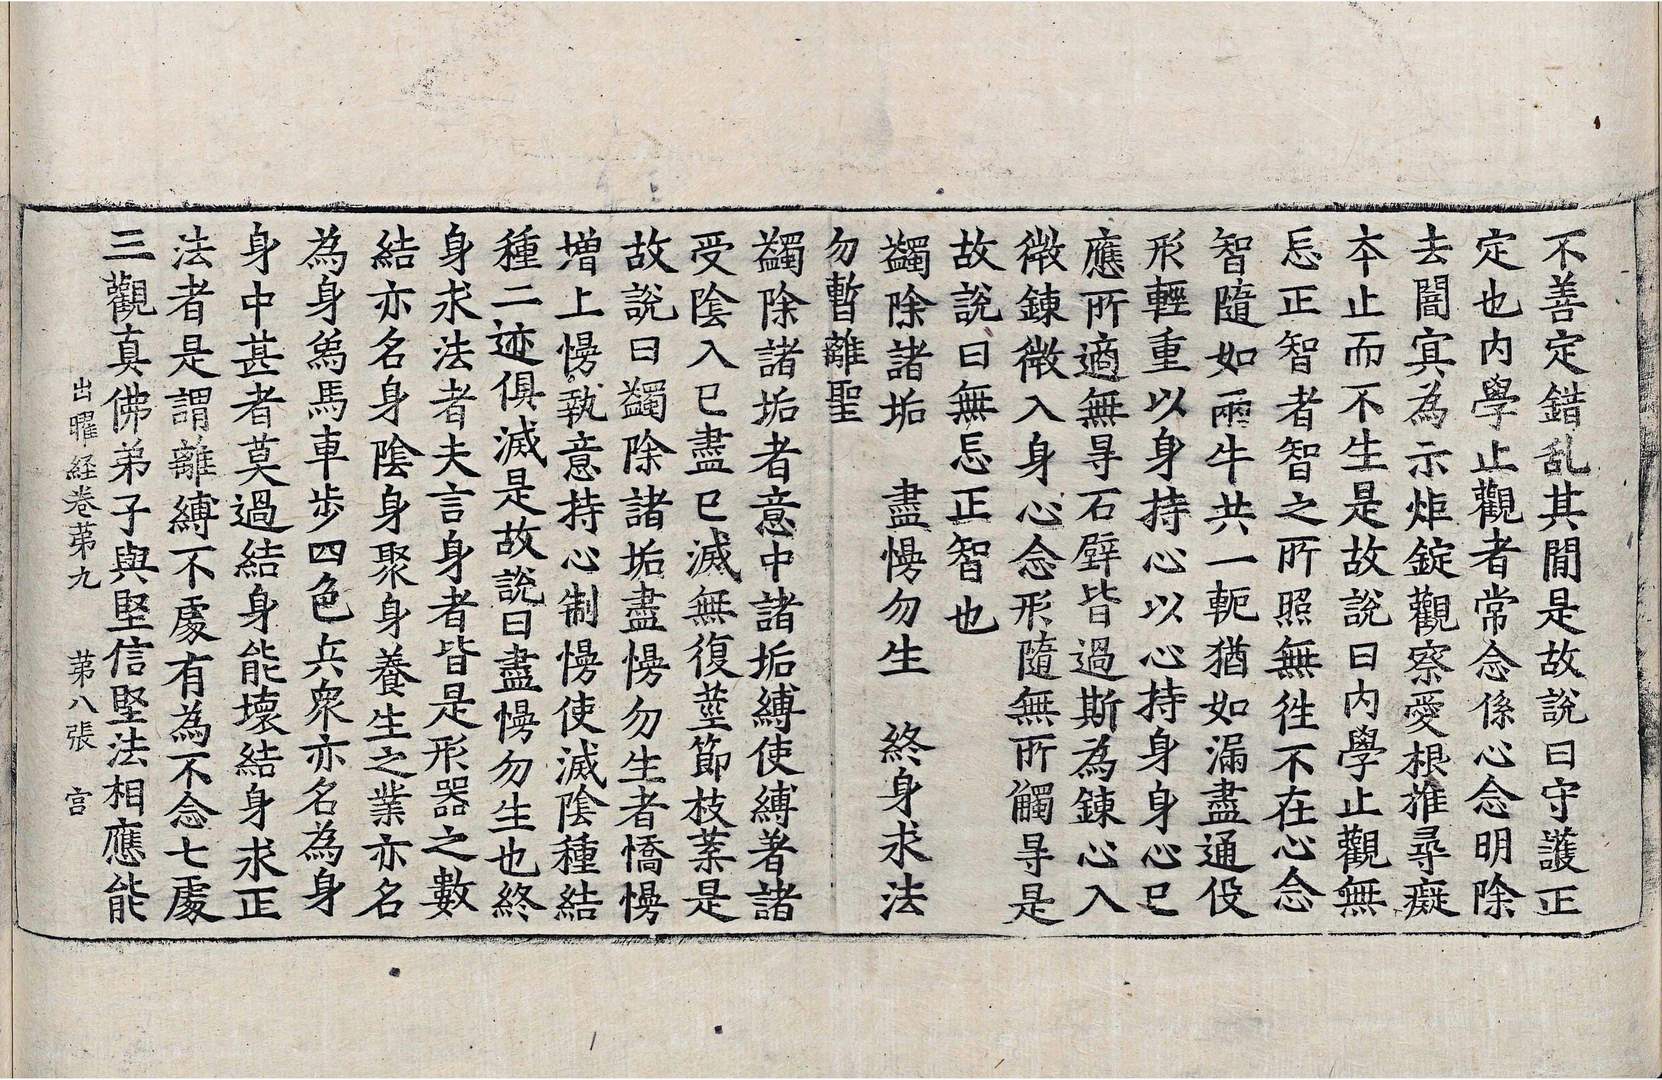 不善定錯乱其閒是故說曰守護正
定也内學止觀者常念係心念明除
去闇㝠為示炬錠觀察愛根推尋癡
本止而不生是故說曰内學止觀無
忘正智者智之所照無徃不在心念
智隨如兩牛共一軛猶如漏盡通伇
形輕重以身持心以心持身身心已
應所適無㝵石壁皆過斯為錬心入
微錬微入身心念形隨無所觸㝵是
故說曰無忘正智也
蠲除諸垢　盡慢勿生　終身求法
勿暫離聖
蠲除諸垢者意中諸垢縛使縛著諸
受陰入已盡已滅無復莖節枝葉是
故說曰蠲除諸垢盡慢勿生者憍慢
増上慢執意持心制慢使滅陰種結
種二迹俱滅是故說曰盡慢勿生也終
身求法者夫言身者皆是形器之數
結亦名身陰身聚身養生之業亦名
為身為馬車步四色兵衆亦名為身
身中甚者莫過結身能壞結身求正
法者是謂離縛不處有為不念七處
三觀真佛弟子與堅信堅法相應能
出曜経卷苐九　苐八張　宫